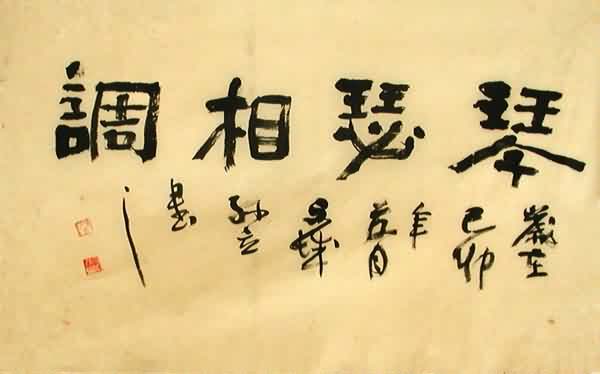 琴瑟相調
歲在己卯年五月
書之